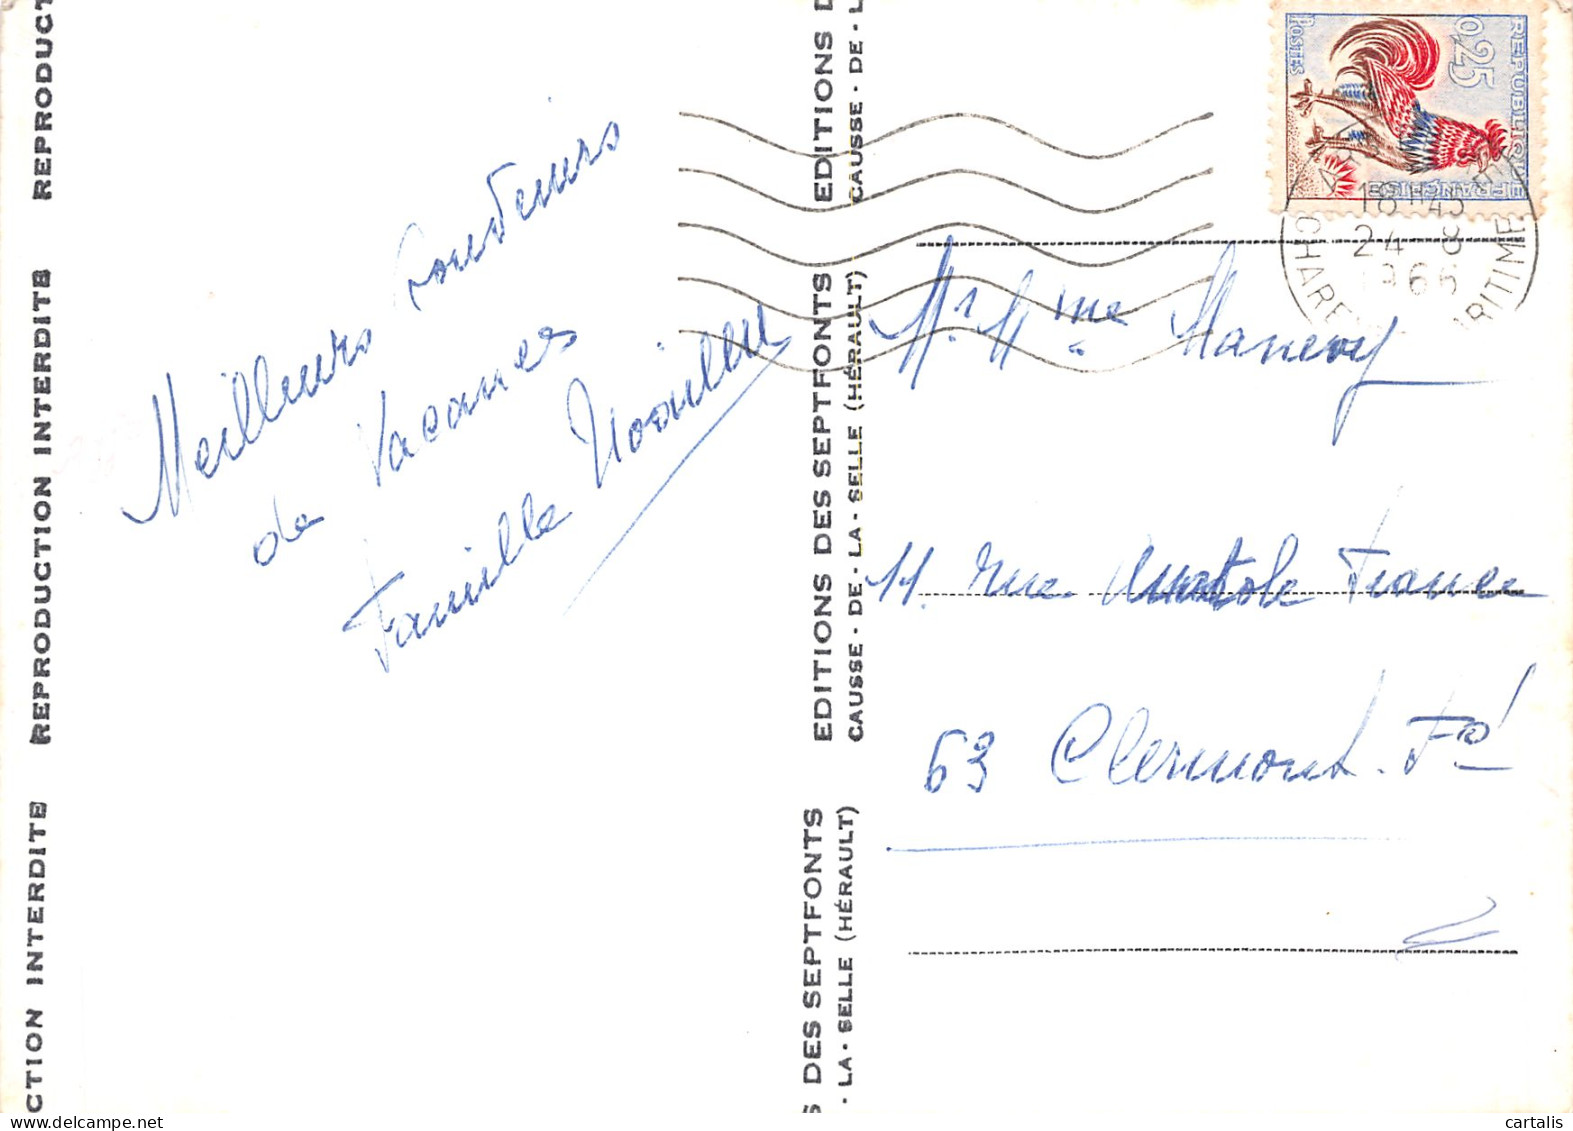 REPRODUCTION INTERDITE
REPRODUCTION INTERDITE
REPRODUCT
CTION INTERDITE
Meilleurs souvenirs
de Vacances
Famille Noailleu
EDITIONS DES SEPTFONTS
CAUSSE - DE - LA - SELLE (HÉRAULT)
EDITIONS D
CAUSSE - DE - L
S DES SEPTFONTS
- LA - SELLE (HÉRAULT)
REPUBLIQUE FRANÇAISE
0,25
POSTES
18 H 45
24 - 8
1966
CHARENTE MARITIME
Mr. Mme Manevy
11. rue Anatole France
63 Clermont. Fd
cartalis